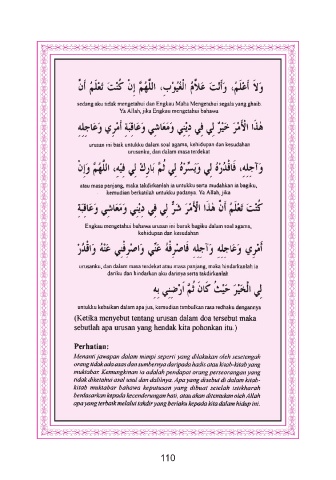 وَلاَ أَعْلَمُ، وَأَنْتَ عَلاَّمُ الْغُيُوْبِ، اللَّهُمَّ إِنْ كُنْتَ تَعْلَمُ أَنَّ
sedang aku tidak mengetahui dan Engkau Maha Mengetahui segala yang ghaib.
Ya Allah, jika Engkau mengetahui bahawa
هَذَا الْأَمْرَ خَيْرٌ لِي فِي دِيْنِي وَمَعَاشِي وَعَاقِبَةِ أَمْرِي وَعَاجِلِهِ
urusan ini baik untukku dalam soal agama, kehidupan dan kesudahan
urusanku, dan dalam masa terdekat
وَآجِلِهِ، فَاقْدُرْهُ لِي وَيَسِّرْهُ لِي ثُمَّ بَارِكْ لِي فِيْهِ، اللَّهُمَّ وَإِنْ
atau masa panjang, maka takdirkanlah ia untukku serta mudahkan ia bagiku,
kemudian berkatilah untukku padanya. Ya Allah, jika
كُنْتَ تَعْلَمُ أَنَّ هَذَا الْأَمْرَ شَرٌّ لِي فِي دِيْنِي وَمَعَاشِي وَعَاقِبَةِ
Engkau mengetahui bahawa urusan ini buruk bagiku dalam soal agama,
kehidupan dan kesudahan
أَمْرِي وَعَاجِلِهِ وَآجِلِهِ فَاصْرِفْهُ عَنِّي وَاصْرِفْنِي عَنْهُ وَاقْدُرْ
urusanku, dan dalam masa terdekat atau masa panjang, maka hindarkanlah ia
dariku dan hindarkan aku darinya serta takdirkanlah
لِي الْخَيْرَ حَيْثُ كَانَ ثُمَّ ارْضِنِي بِهِ
untukku kebaikan dalam apa jua, kemudian timbulkan rasa redhaku dengannya
(Ketika menyebut tentang urusan dalam doa tersebut maka
sebutlah apa urusan yang hendak kita pohonkan itu.)
Perhatian:
Menanti jawapan dalam mimpi seperti yang dilakukan oleh sesetengah
orang tidak ada asas dan sumbernya daripada hadis atau kitab-kitab yang
muktabar. Kemungkinan ia adalah pendapat orang perseorangan yang
tidak diketahui asal usul dan dalilnya. Apa yang disebut di dalam kitab-
kitab muktabar bahawa keputusan yang dibuat setelah istikharah
berdasarkan kepada kecenderungan hati, atau akan ditentukan oleh Allah
apa yang terbaik melalui takdir yang berlaku kepada kita dalam hidup ini.
110